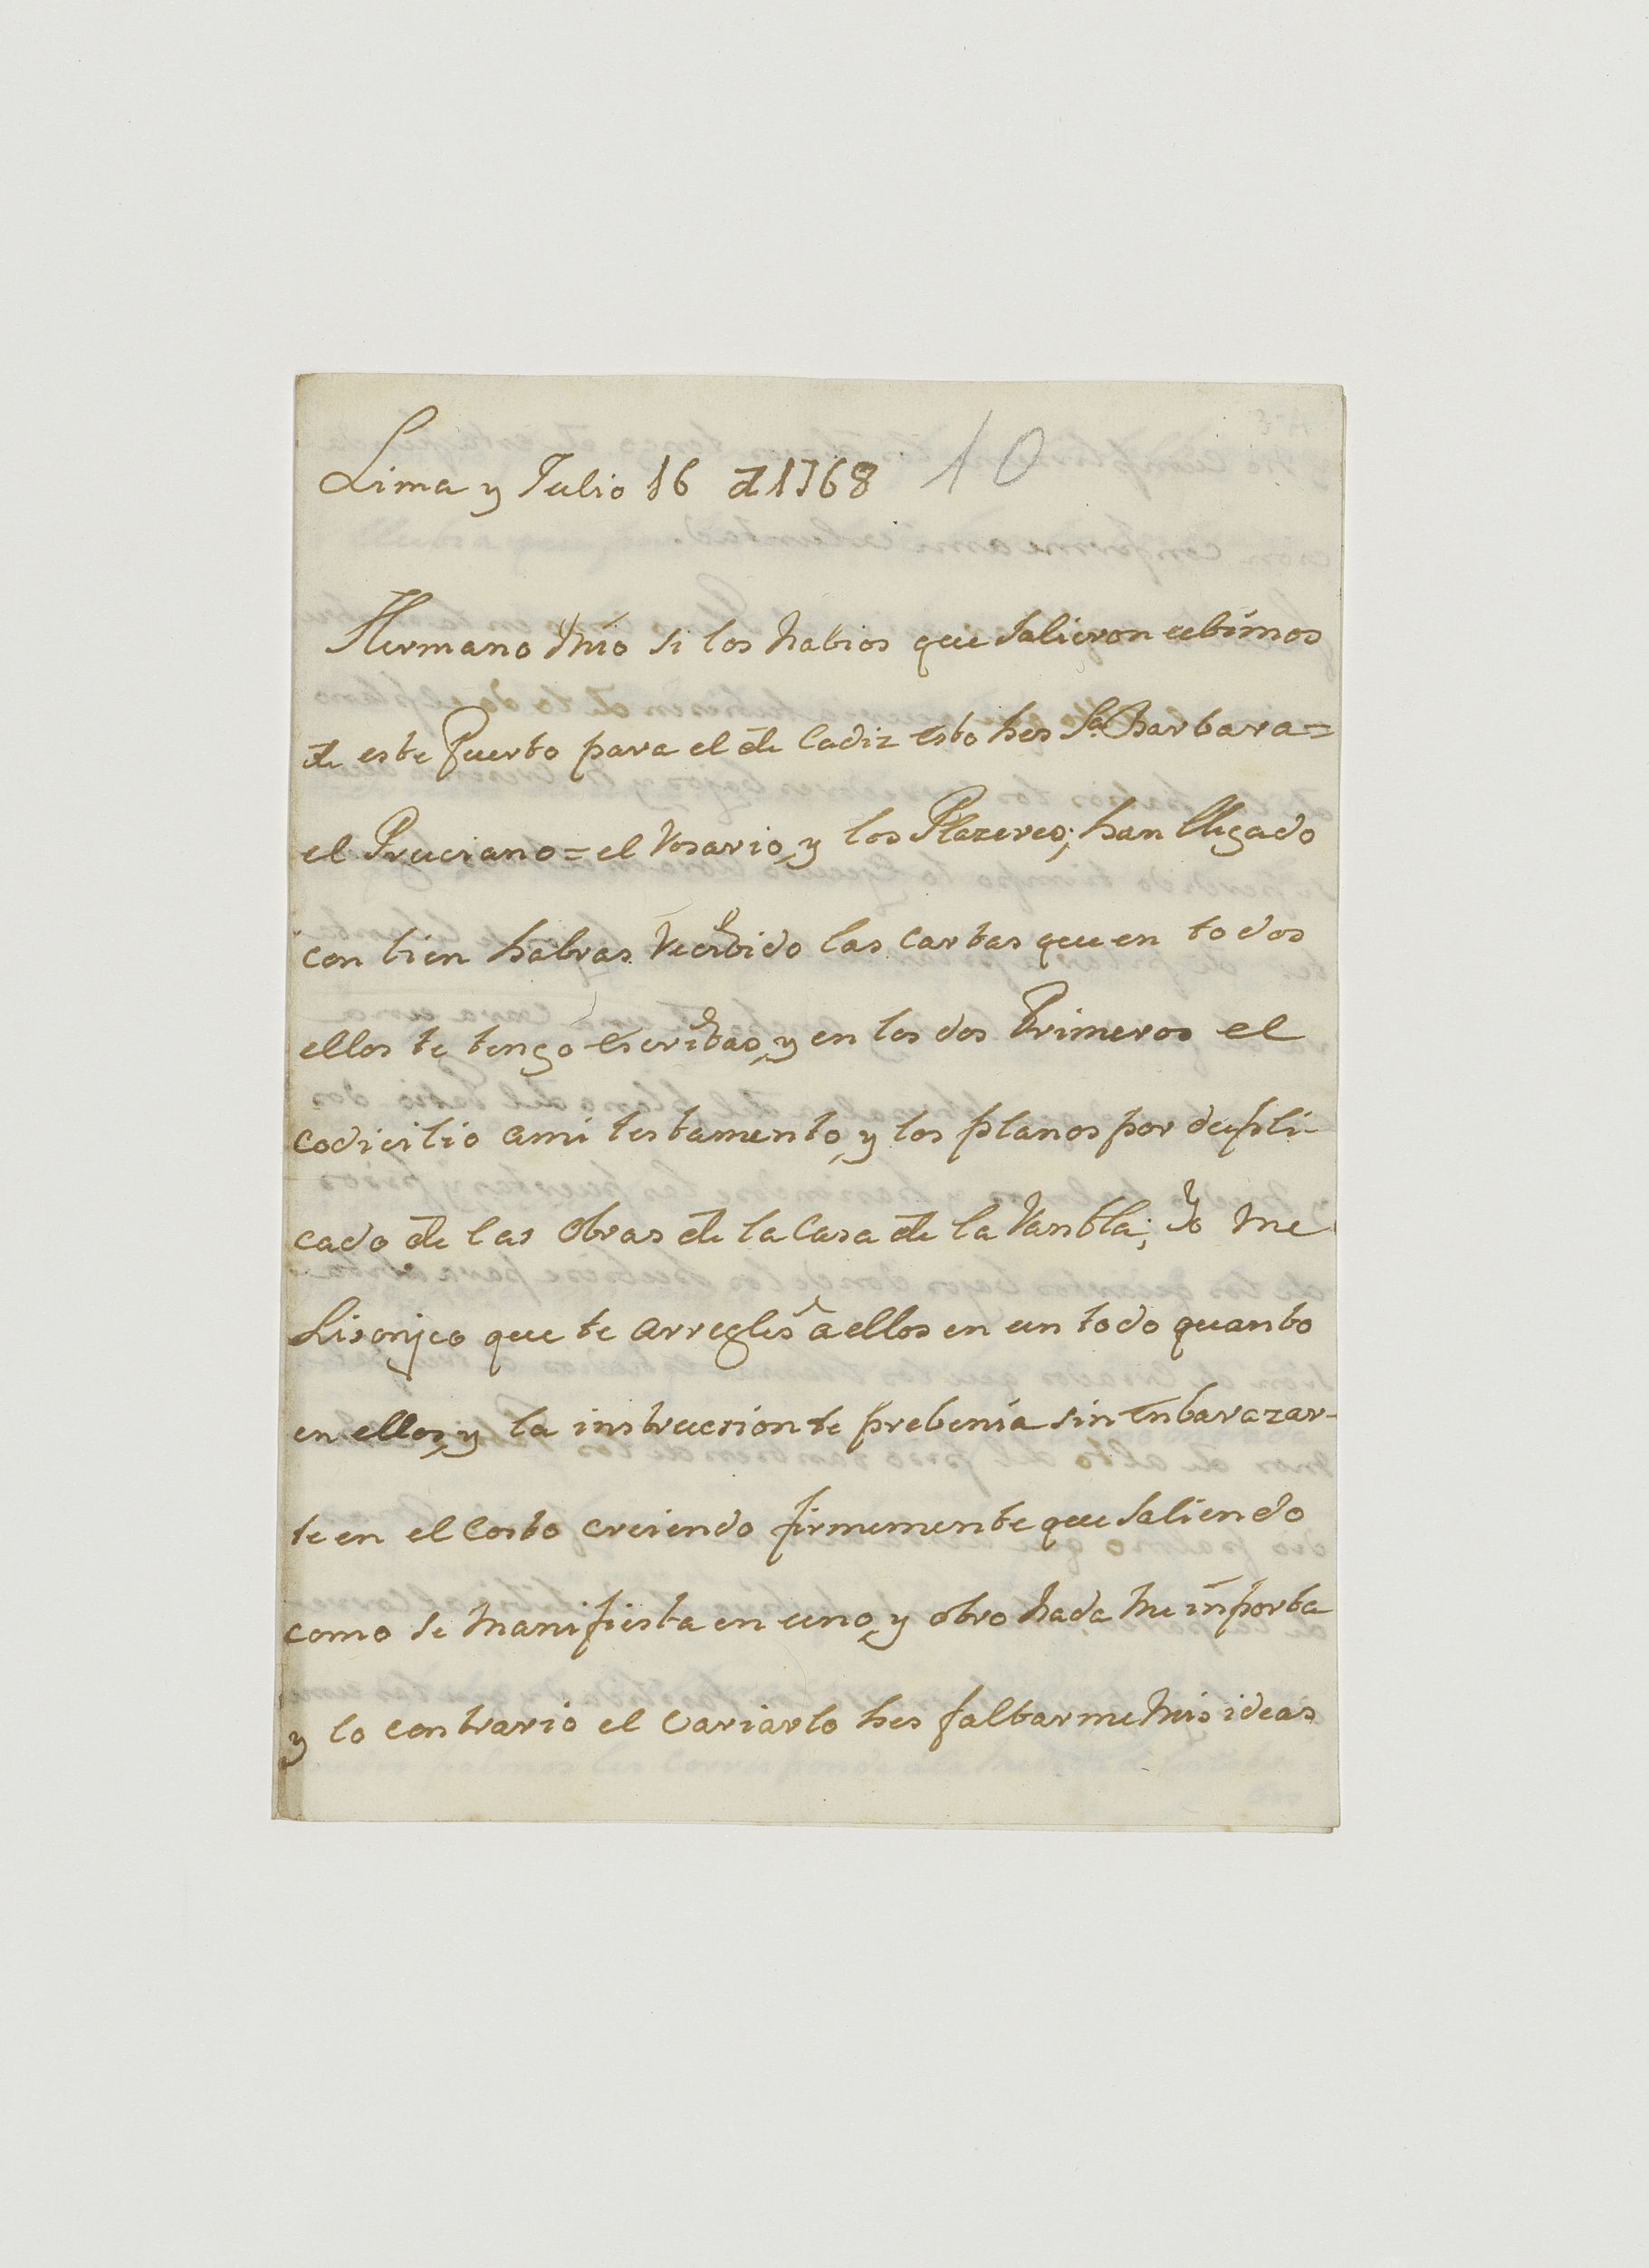 Lima y Julio 16 de 1768 10
Hermano Mio si los Nabios que Salieron ultimos
de este Puerto para el de Cadiz esto hes Sta Barbara=
el Pruciano= el Rosario, y los Plazeres; han llegado
con bien habras Recibido las cartas que en todos
ellos te tengo Escritas, y en los dos Primeros el
codicilio ami testamento, y los planos por dupli-
cado de las Obras de la Casa de la Rambla; Yo Me
Lisonjeo que te arregles a ellos en un todo quanto
en ellos, y la instruccion te prebenia sin Enbarazar-
te en el Costo creiendo firmemente que Saliendo
como se Manifiesta en uno, y otro Nada Me inporta
y lo contrario el Variarlo hes faltarme Mis ideas